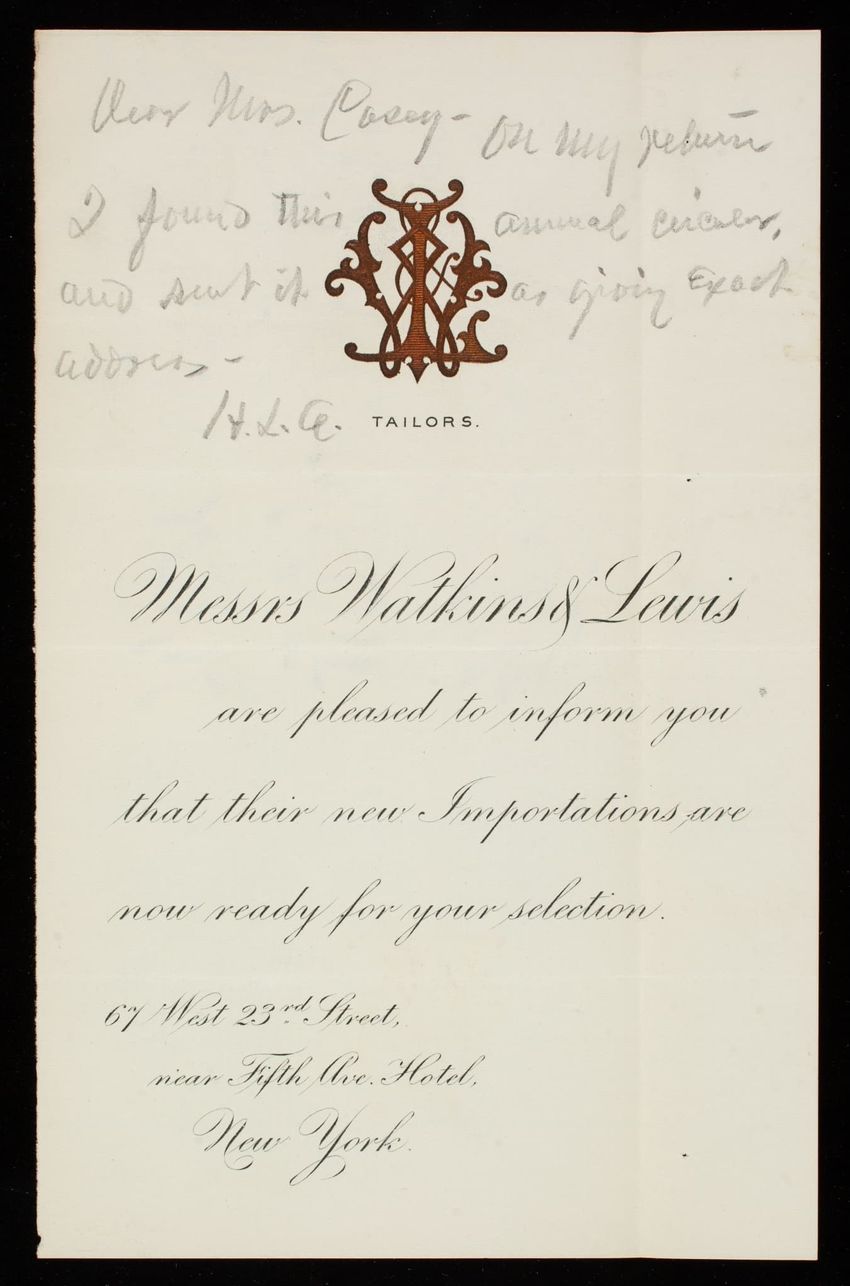 Dear Mrs. Casey - On my return
I found this annual circular,
and sent it as giving Exact
address -
H. L. A.
TAILORS.
Messrs Watkins & Lewis
are pleased to inform you
that their new Importations are
now ready for your selection.
67 West 23rd Street,
near Fifth Ave. Hotel,
New York.